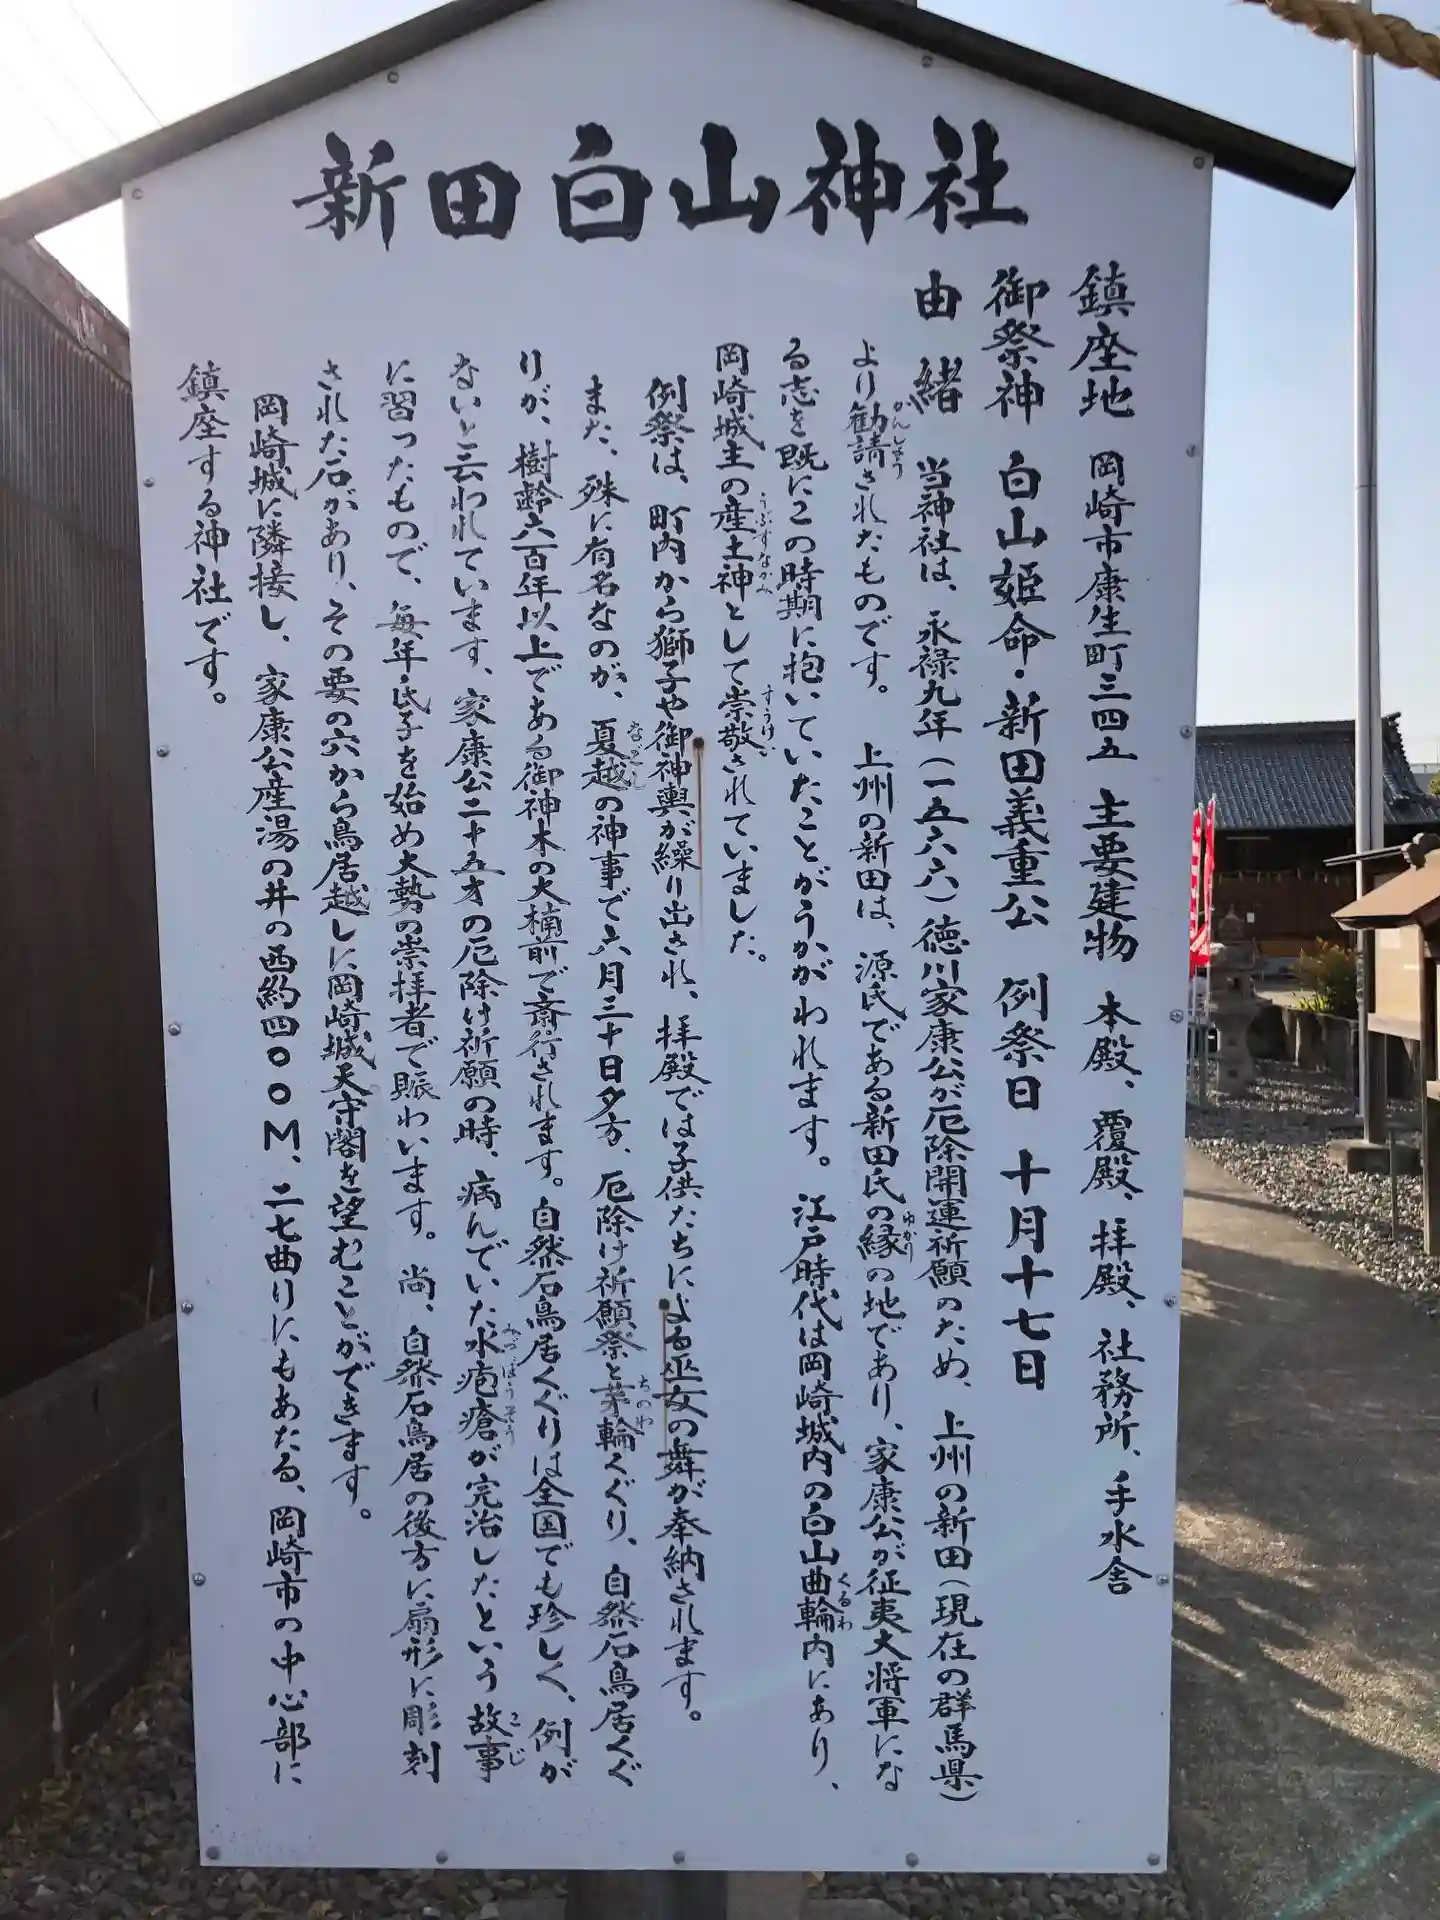 新田白山神社
鎮座地 岡崎市康生町三四五 主要建物 本殿、覆殿、拝殿、社務所、手水舎
御祭神 白山姫命・新田義重公 例祭日 十月十七日
由緒 当神社は、永禄九年(一五六六)徳川家康公が厄除開運祈願のため、上州の新田(現在の群馬県)
より勧請されたものです。 上州の新田は、源氏である新田氏の縁の地であり、家康公が征夷大将軍にな
る志を既にこの時期に抱いていたことがうかがわれます。江戸時代は岡崎城内の白山曲輪内にあり、
岡崎城主の産土神として崇敬されていました。
例祭は、町内から獅子や御神輿が繰り出され、拝殿では子供たちによる巫女の舞が奉納されます。
また、殊に有名なのが、夏越の神事で六月三十日夕方、厄除け祈願祭と茅輪くぐり、自然石鳥居くぐ
りが、樹齢六百年以上である御神木の大楠前で斎行されます。自然石鳥居くぐりは全国でも珍しく、例が
ないと云われています、家康公二十五才の厄除け祈願の時、病んでいた水疱瘡が完治したという故事
に習ったもので、毎年、氏子を始め大勢の崇拝者で賑わいます。尚、自然石鳥居の後方に扇形に彫刻
された石があり、その要の穴から鳥居越しに岡崎城天守閣を望むことができます。
岡崎城に隣接し、家康公産湯の井の西約四〇〇M、二七曲りにもあたる、岡崎市の中心部に
鎮座する神社です。